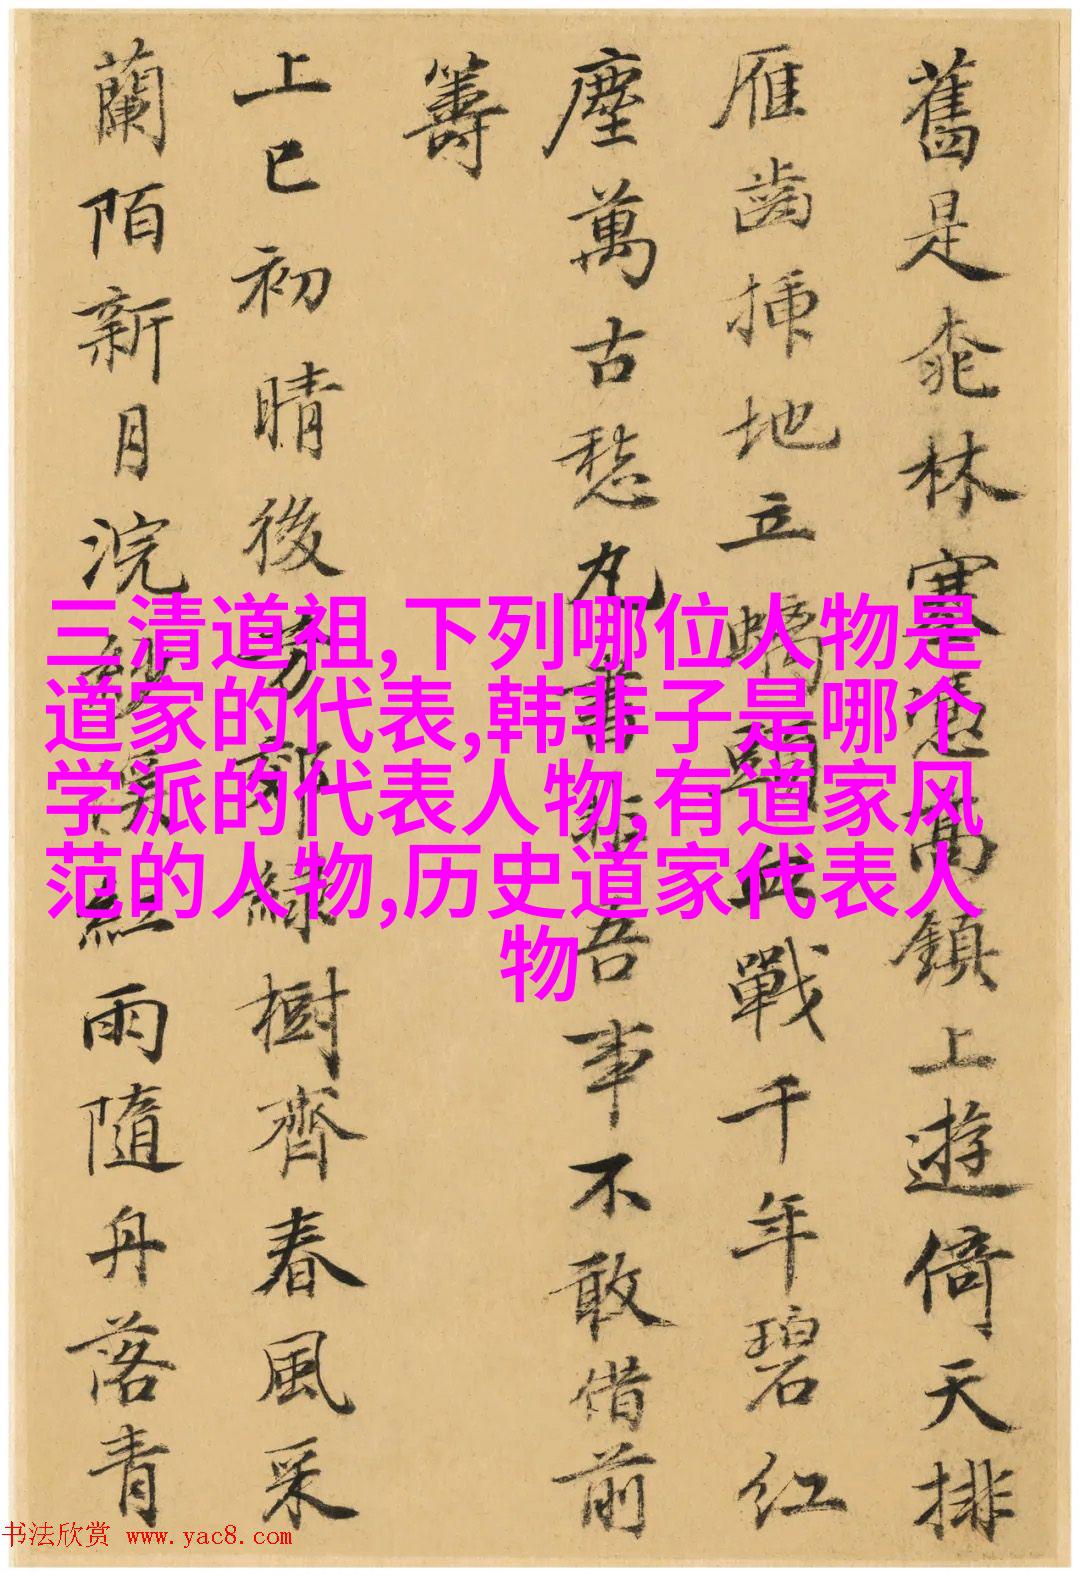 舊是桃林塞憑高鎮上遊倚天排
雁齒插地立螭頭血戰千年碧紅
塵萬古愁丸書吾事不敢借前
籌
上巳初晴後芳郊綠樹齊春風采
蘭陌新月浣紗溪紅雨隨舟落青
三清道祖,下列哪位人物是
道家的代表,韩非子是哪个
学派的代表人物,有道家风
范的人物,历史道家代表人
物
书法欣赏 www.yac8.com